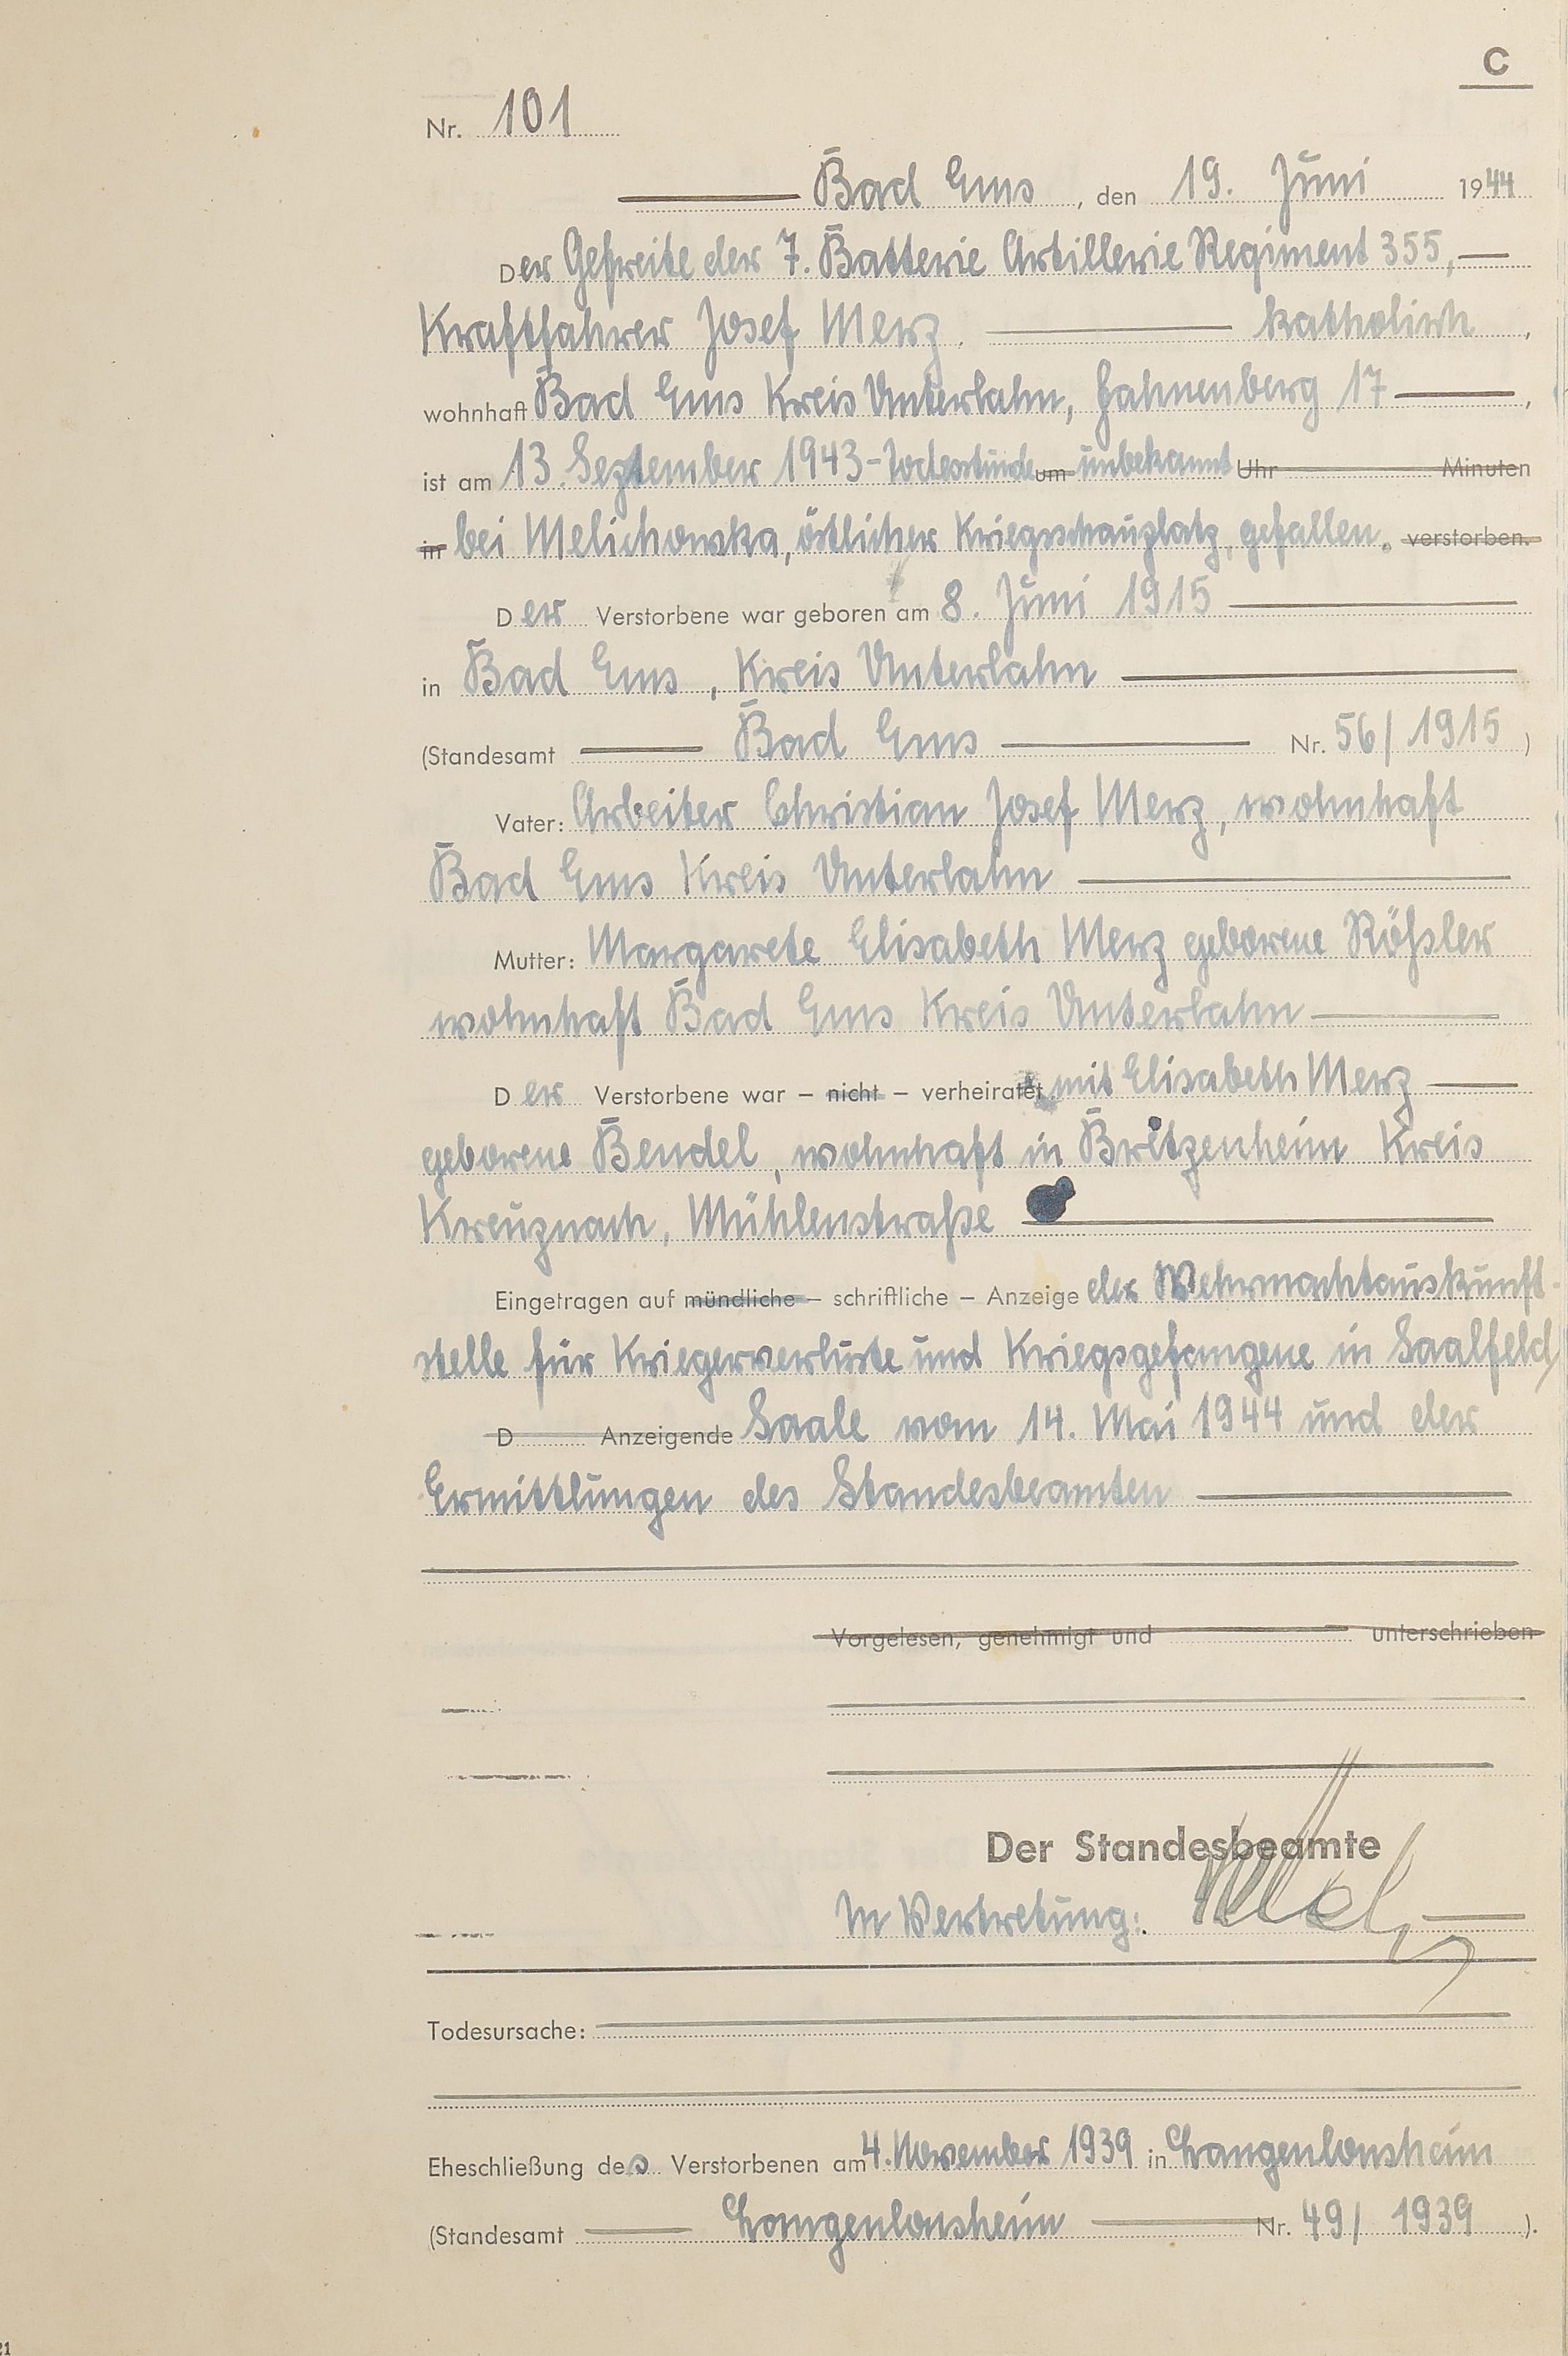 C
Nr. 101
Bad Ems, den 19. Juni 1944
Der Gefreite der 7. Batterie Artillerie Regiment 355,
Kraftfahrer Josef Merz. katholisch,
wohnhaft Bad Ems Kreis Unterlahn, Hahnenberg 17,
ist am 13. September 1943 - Todesstunde um unbekannt Uhr Minuten
in bei Melichowka, östlicher Kriegsschauplatz, gefallen. verstorben.
Der Verstorbene war geboren am 8. Juni 1915
in Bad Ems, Kreis Unterlahn
(Standesamt Bad Ems Nr. 56/1915)
Vater: Arbeiter Christian Josef Merz, wohnhaft
Bad Ems Kreis Unterlahn
Mutter: Margarete Elisabeth Merz geborene Rößler
wohnhaft Bad Ems Kreis Unterlahn
Der Verstorbene war – nicht – verheiratet mit Elisabeth Merz
geborene Bendel, wohnhaft in Bretzenheim Kreis
Kreuznach, Mühlenstraße
Eingetragen auf mündliche – schriftliche – Anzeige der Wehrmachtauskunft-
stelle für Kriegerverluste und Kriegsgefangene in Saalfeld/
D Anzeigende Saale vom 14. Mai 1944 und der
Ermittlungen des Standesbeamten
Vorgelesen, genehmigt und unterschrieben
Der Standesbeamte
In Vertretung:
Todesursache:
Eheschließung des Verstorbenen am 4. November 1939 in Langenlonsheim
(Standesamt Langenlonsheim Nr. 49/1939).
21